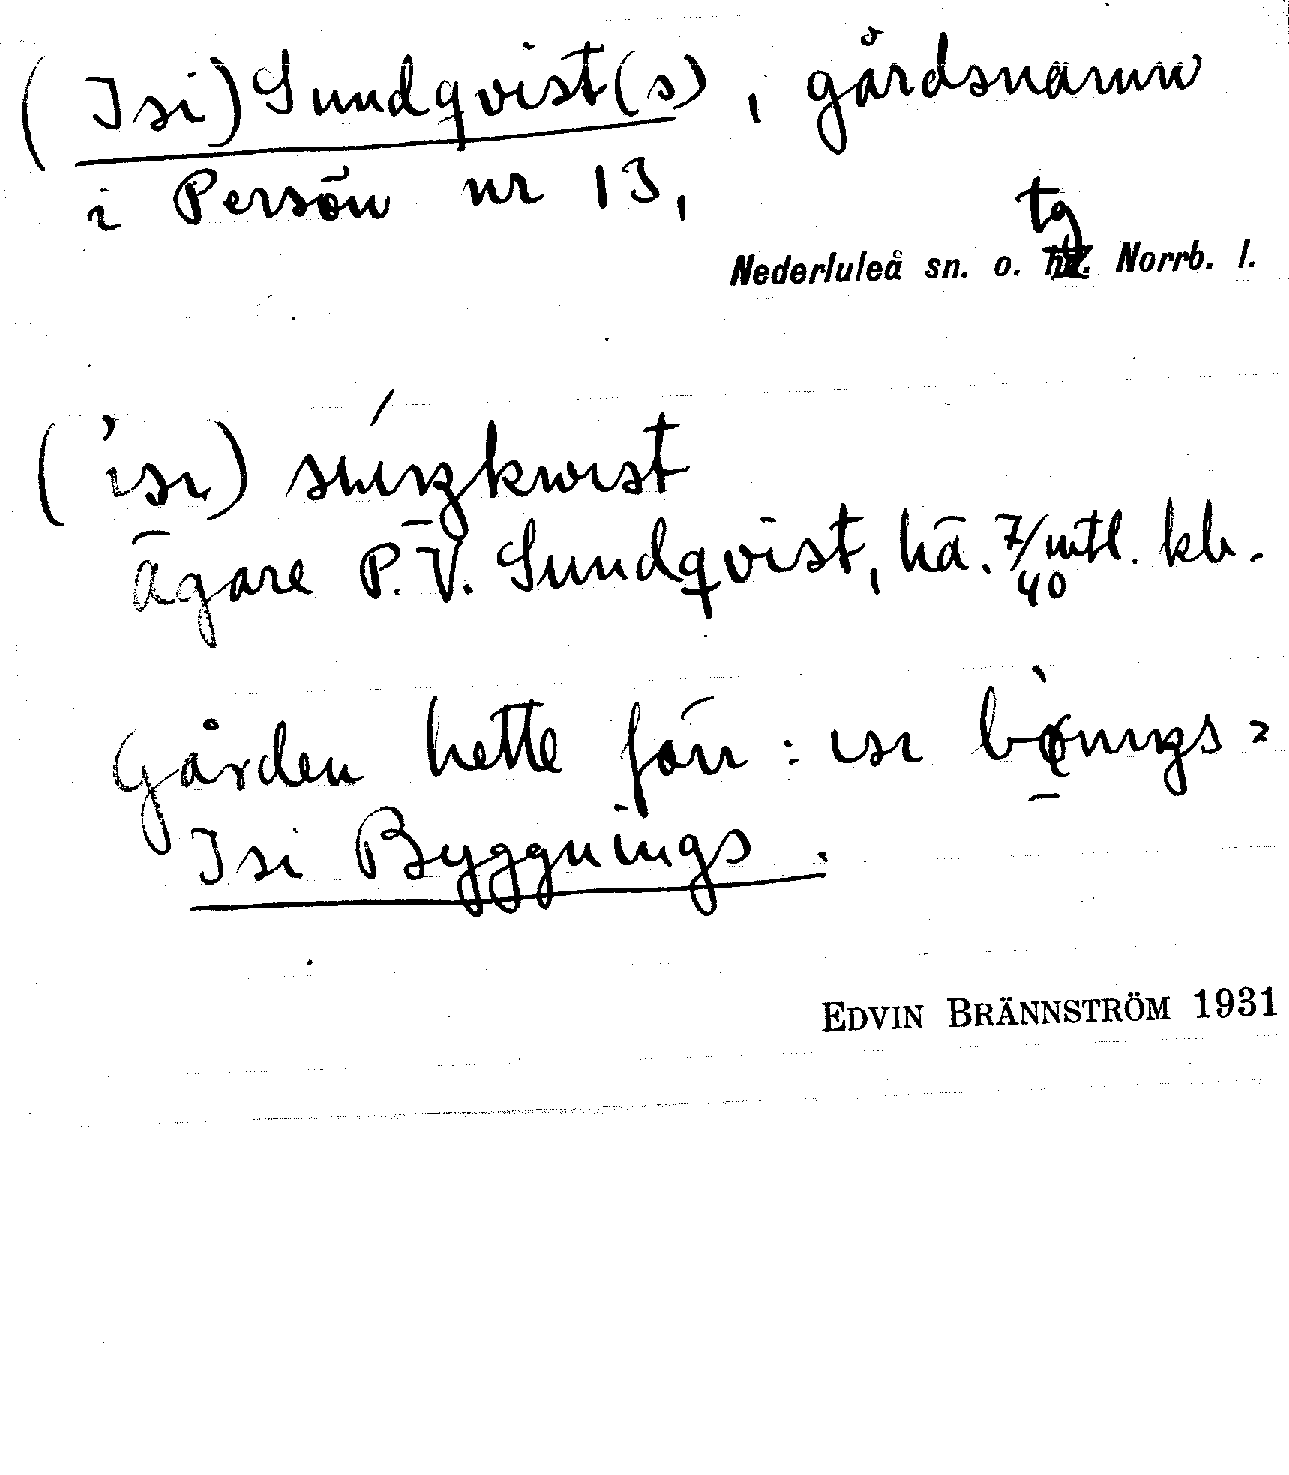 (Isi) Sundqvist(s), gårdsnamn
i Persön nr 13,
tg
Nederluleå sn. o. Norrb. l.
(isi)
ägare P.V. Sundqvist, hä. 7/40 mtl. kb.
Gården hette förr: isi
Isi Byggnings.
EDVIN BRÄNNSTRÖM 1931